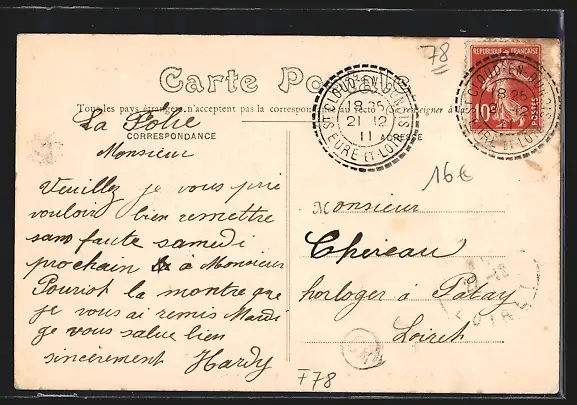 78
Carte Postale
Tous les pays étrangers n'acceptent pas la correspondance au recto (Se renseigner à la
REPUBLIQUE FRANÇAISE
10c
POSTES
ST CLOUD-EN-DUNOIS
18 35
21 12
11
EURE ET LOIR
18 35
La Folie
CORRESPONDANCE
ADRESSE
Monsieur
Veuillez je vous prie
vouloir bien remettre
sans faute samedi
prochain à Monsieur
Pouriot la montre que
je vous ai remis Mardi
je vous salue bien
sincèrement Hardy
16€
Monsieur
Chereau
horloger à Patay
Loiret
LOIRET
F78